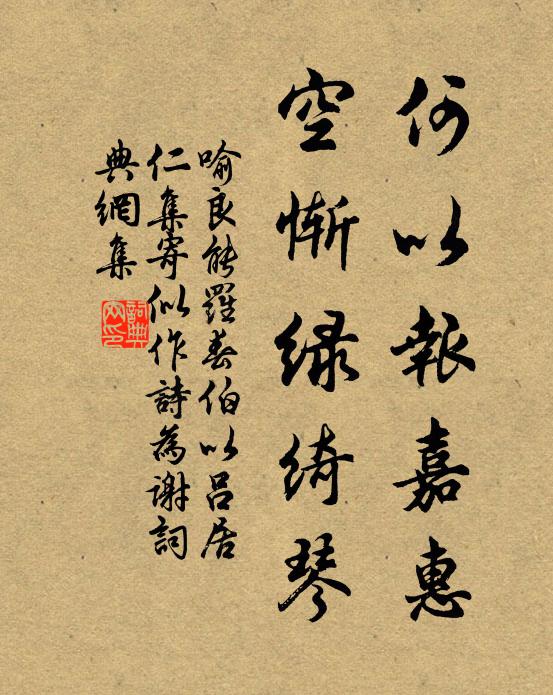 何以報嘉惠
空慚緑綺琴
喻良能羅春伯以呂居
仁集寄似作詩為謝詞
典網集
詞典網印